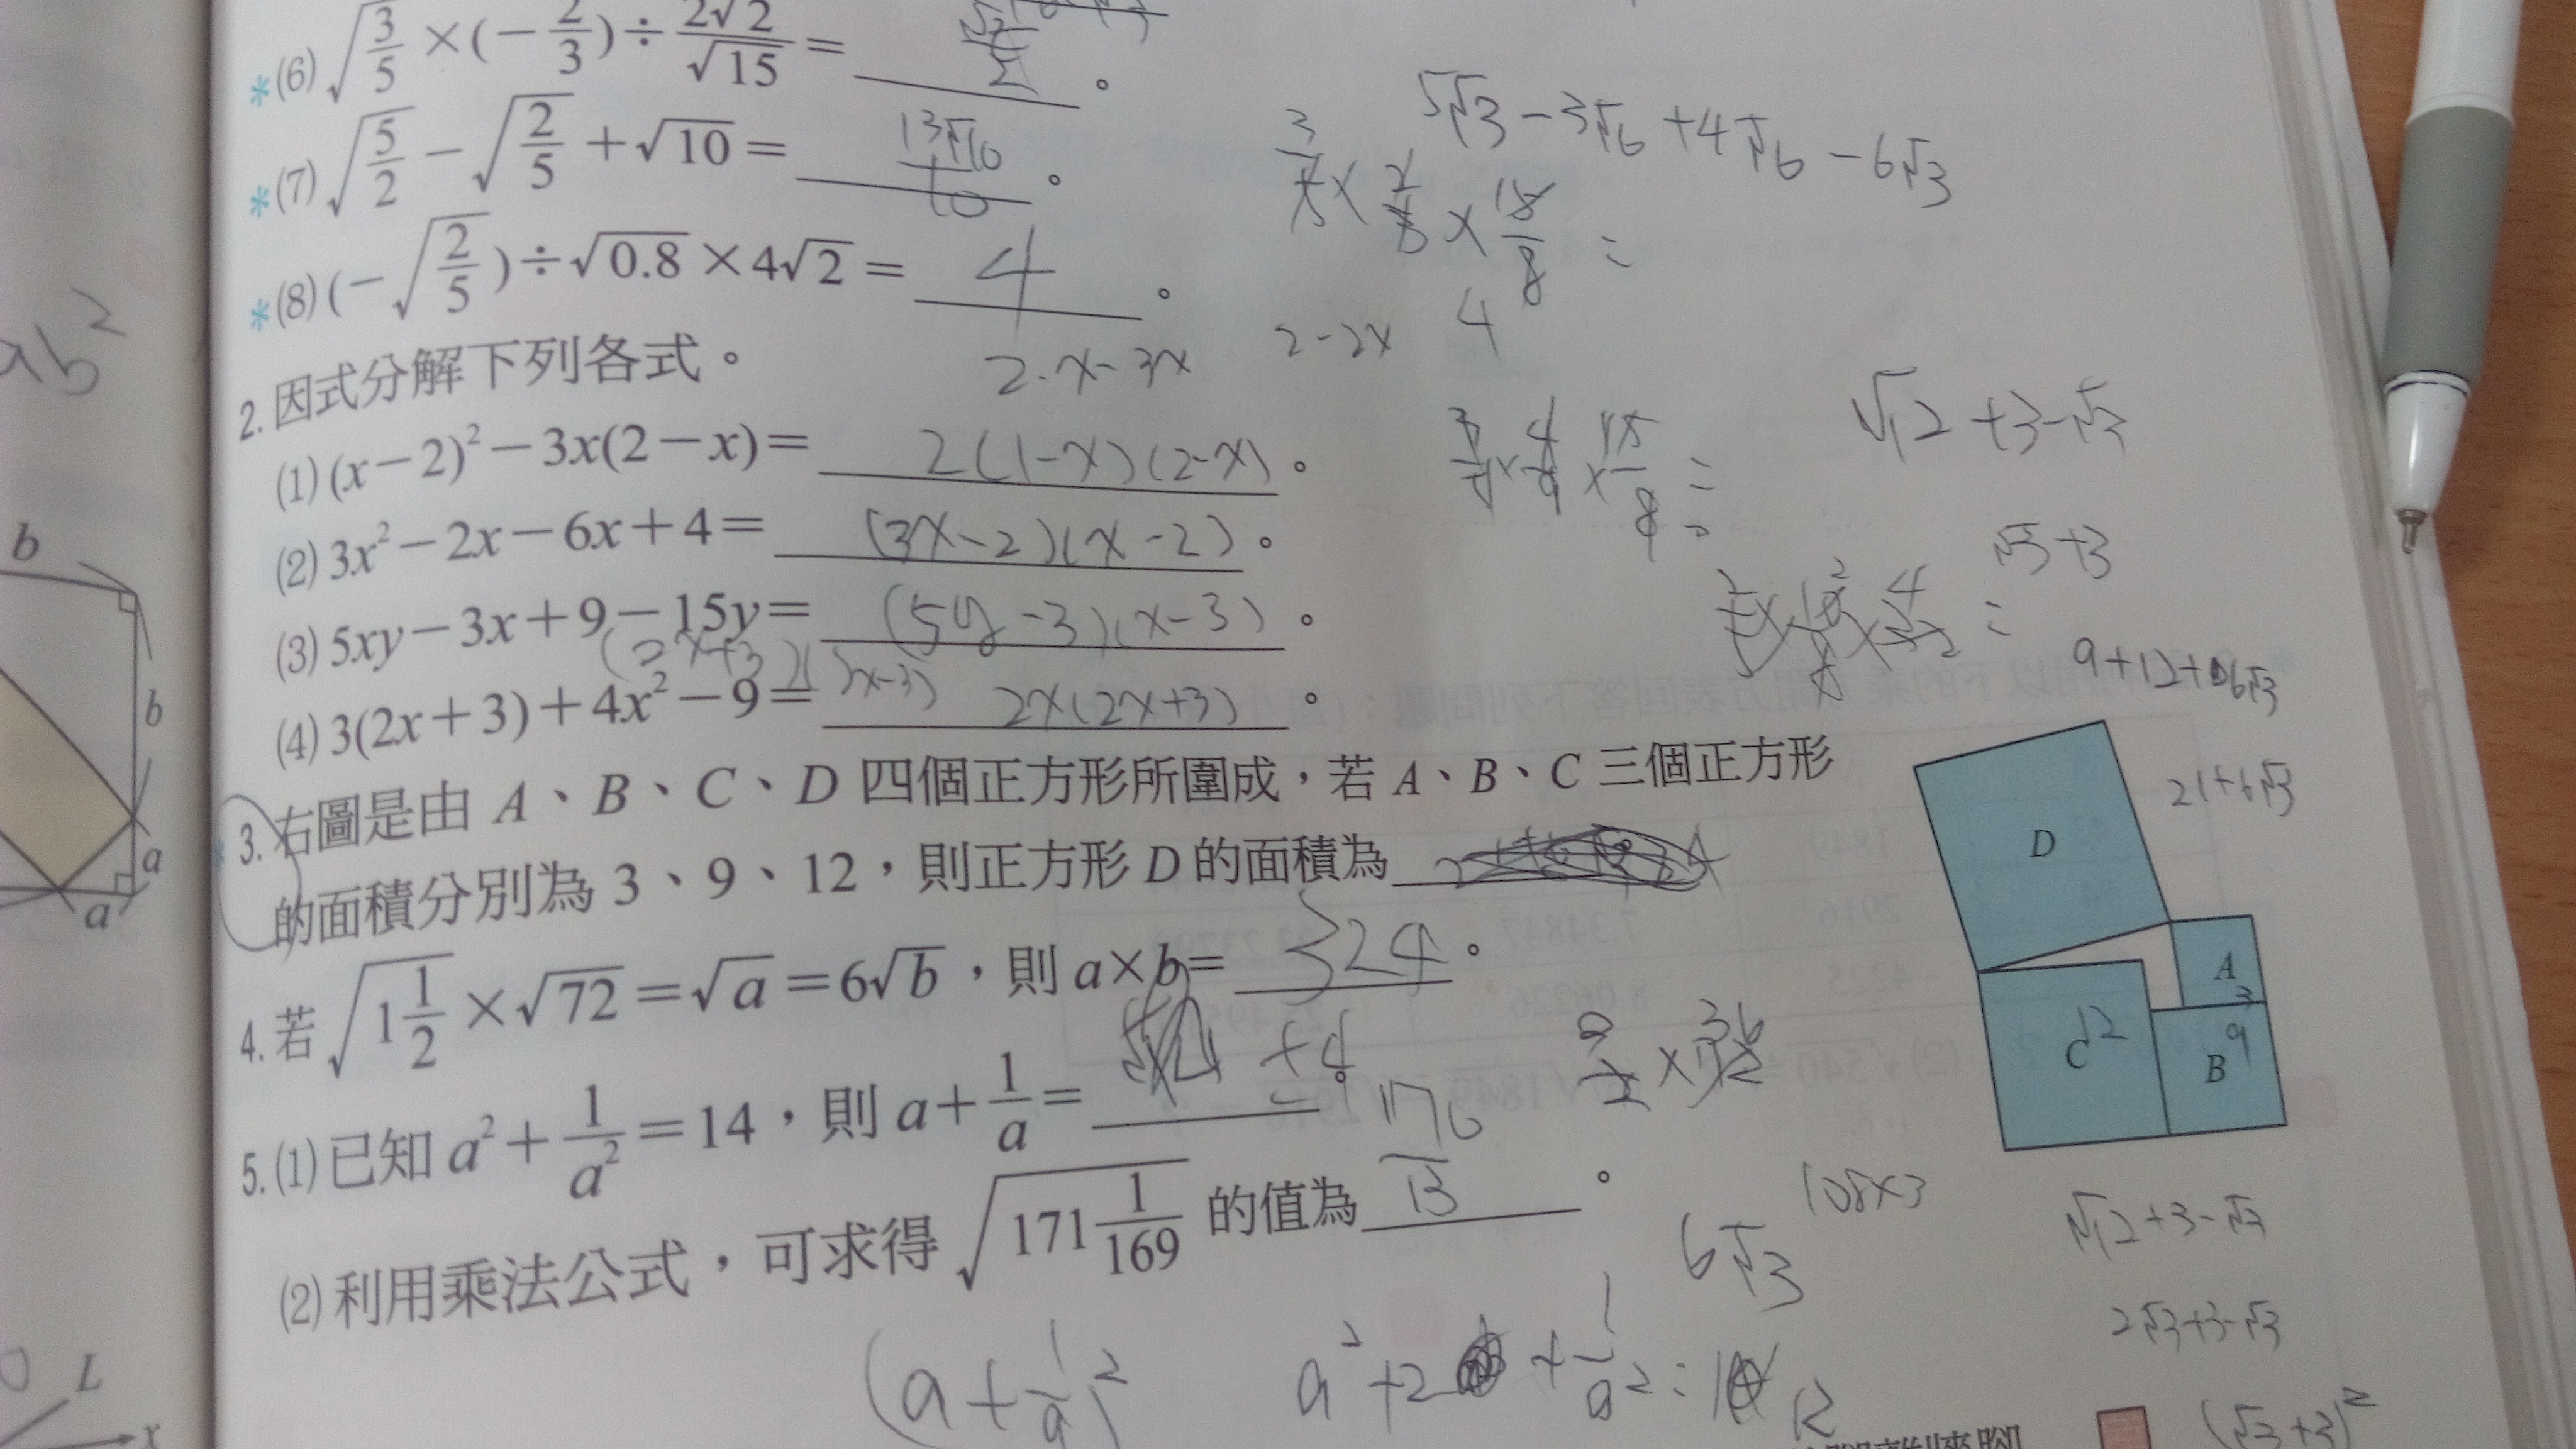 *(6) √(3/5) × (−2/3) ÷ 2√2/√15 = 。
*(7) √(5/2) − √(2/5) + √10 = 13√10/10 。
*(8) (−√(2/5)) ÷ √0.8 × 4√2 = 4 。
2. 因式分解下列各式。
(1) (x−2)²−3x(2−x)= 2(1-x)(2-x) 。
(2) 3x²−2x−6x+4= (3x-2)(x-2) 。
(3) 5xy−3x+9−15y= (5y-3)(x-3) 。
(4) 3(2x+3)+4x²−9= 2x(2x+3) 。
3. 右圖是由 A、B、C、D 四個正方形所圍成，若 A、B、C 三個正方形
的面積分別為 3、9、12，則正方形 D 的面積為
4. 若 √(1 1/2) × √72 = √a = 6√b，則 a×b= 324 。
5. (1) 已知 a² + 1/a² = 14，則 a + 1/a = ±4
(2) 利用乘法公式，可求得 √(171 1/169) 的值為 170/13 。
5√3-3√6+4√6-6√3
4
2-2x
2-x-3x
√12+3-√3
√3+3
9+12+6√3
21+6√3
D
A
3
C 12
B 9
108×3
6√3
√12+3-√3
2√3+3-√3
(√3+3)²
(a+1/a)²
ab²
b
b
a
a
L
x